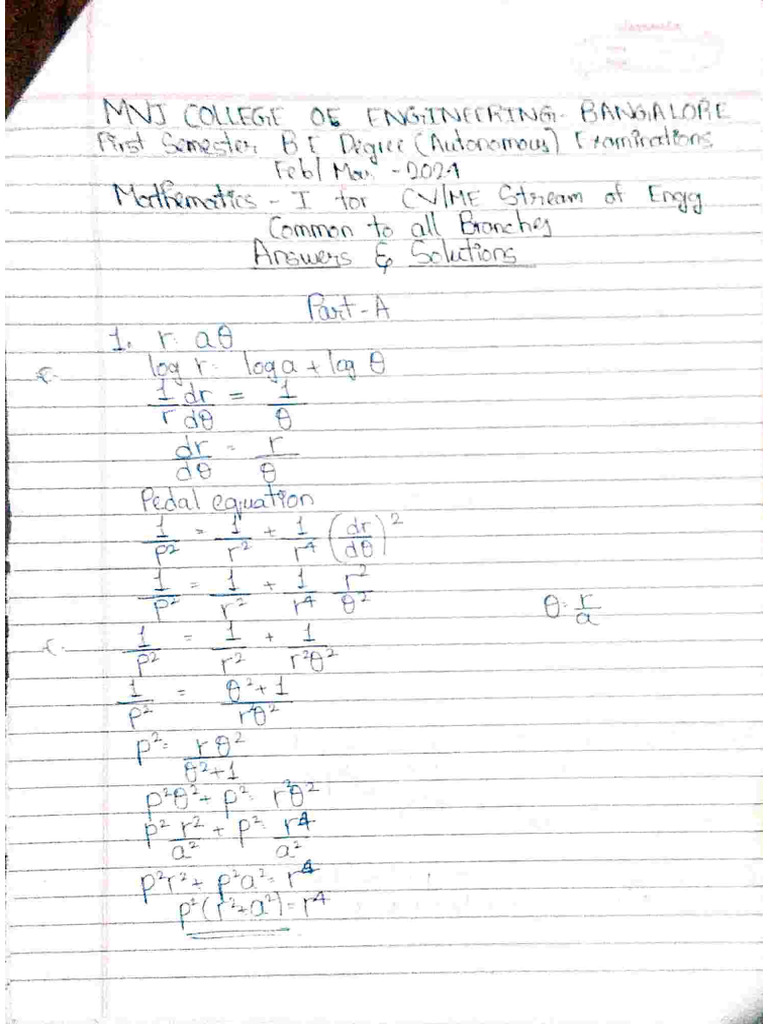 MVJ COLLEGE OF ENGINEERING- BANGALORE
First Semester B E Degree (Autonomous) Examinations
Feb/Mar -2024
Mathematics - I for CV/ME Stream of Engg
Common to all Branches
Answers & Solutions
Part-A
1. r = aθ
log r = log a + log θ
1/r dr/dθ = 1/θ
dr/dθ = r/θ
Pedal equation
1/P² = 1/r² + 1/r⁴ (dr/dθ)²
1/P² = 1/r² + 1/r⁴ r²/θ²
θ = r/a
1/P² = 1/r² + 1/r²θ²
1/P² = θ²+1/r²θ²
P² = rθ²/θ²+1
P²θ² + P² = r²θ²
P² r²/a² + P² = r⁴/a²
P²r² + P²a² = r⁴
P²(r²+a²) = r⁴